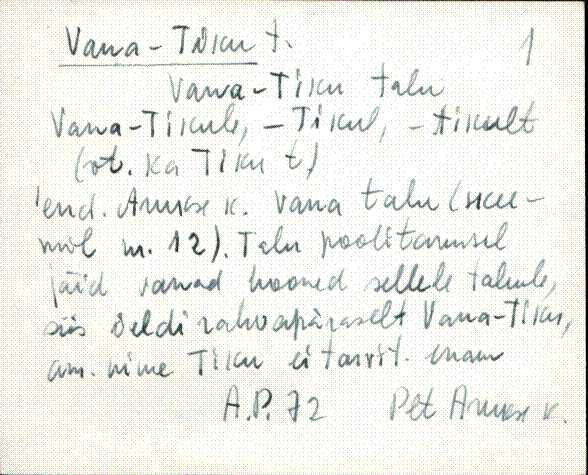 Vana-Tiku t. 1
Vana-Tiku talu
Vana-Tikule, -Tikul, -tikult
(vt. ka Tiku t)
end. Arukse k. vana talu (skee-
mil nr. 12). Talu poolitamisel
jäid vanad hooned sellele talule,
siis öeldi rahvapäraselt Vana-Tiku,
am. nime Tiku ei tarvit. enam
A.P. 72 Pet Arukse k.